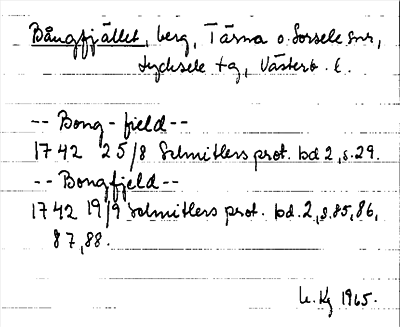 Bångfjället, berg, Tärna o. Sorsele snr,
Lycksele tg, Västerb. l.
-- Bong-field --
1742 25/8 Schnitlers prot. bd 2, s. 29.
-- Bongfjeld --
1742 19/9 Schnitlers prot. bd. 2, s. 85, 86,
87, 88.
1965.